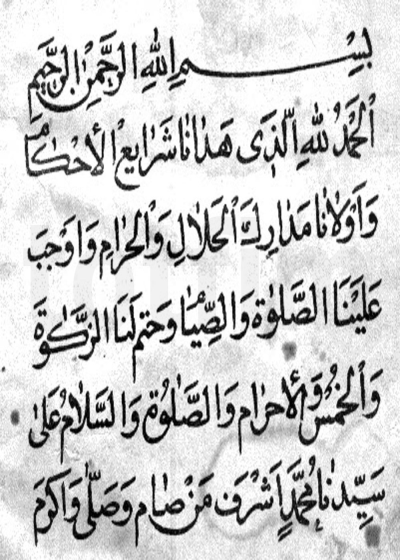 بِسْمِ اللهِ الرَّحْمٰنِ الرَّحِيمِ
اَلْحَمْدُ لِلّٰهِ الَّذِى هَدٰانٰا شَرٰايِعَ الْأَحْكٰامِ
وَاَوْلَانٰا مَدٰارِكَ الْحَلَالِ وَالْحَرٰامِ وَاَوْجَبَ
عَلَيْنَا الصَّلٰوةَ وَالصِّيٰامَ وَحَتَمَ لَنَا الزَّكٰوةَ
وَالْخُمْسَ وَالْأِحْرٰامَ وَالصَّلٰوةُ وَالسَّلَامُ عَلىٰ
سَيِّدِنٰا مُحَمَّدٍ اَشْرَفِ مَنْ صٰامَ وَصَلّٰى وَاَكْرَمِ